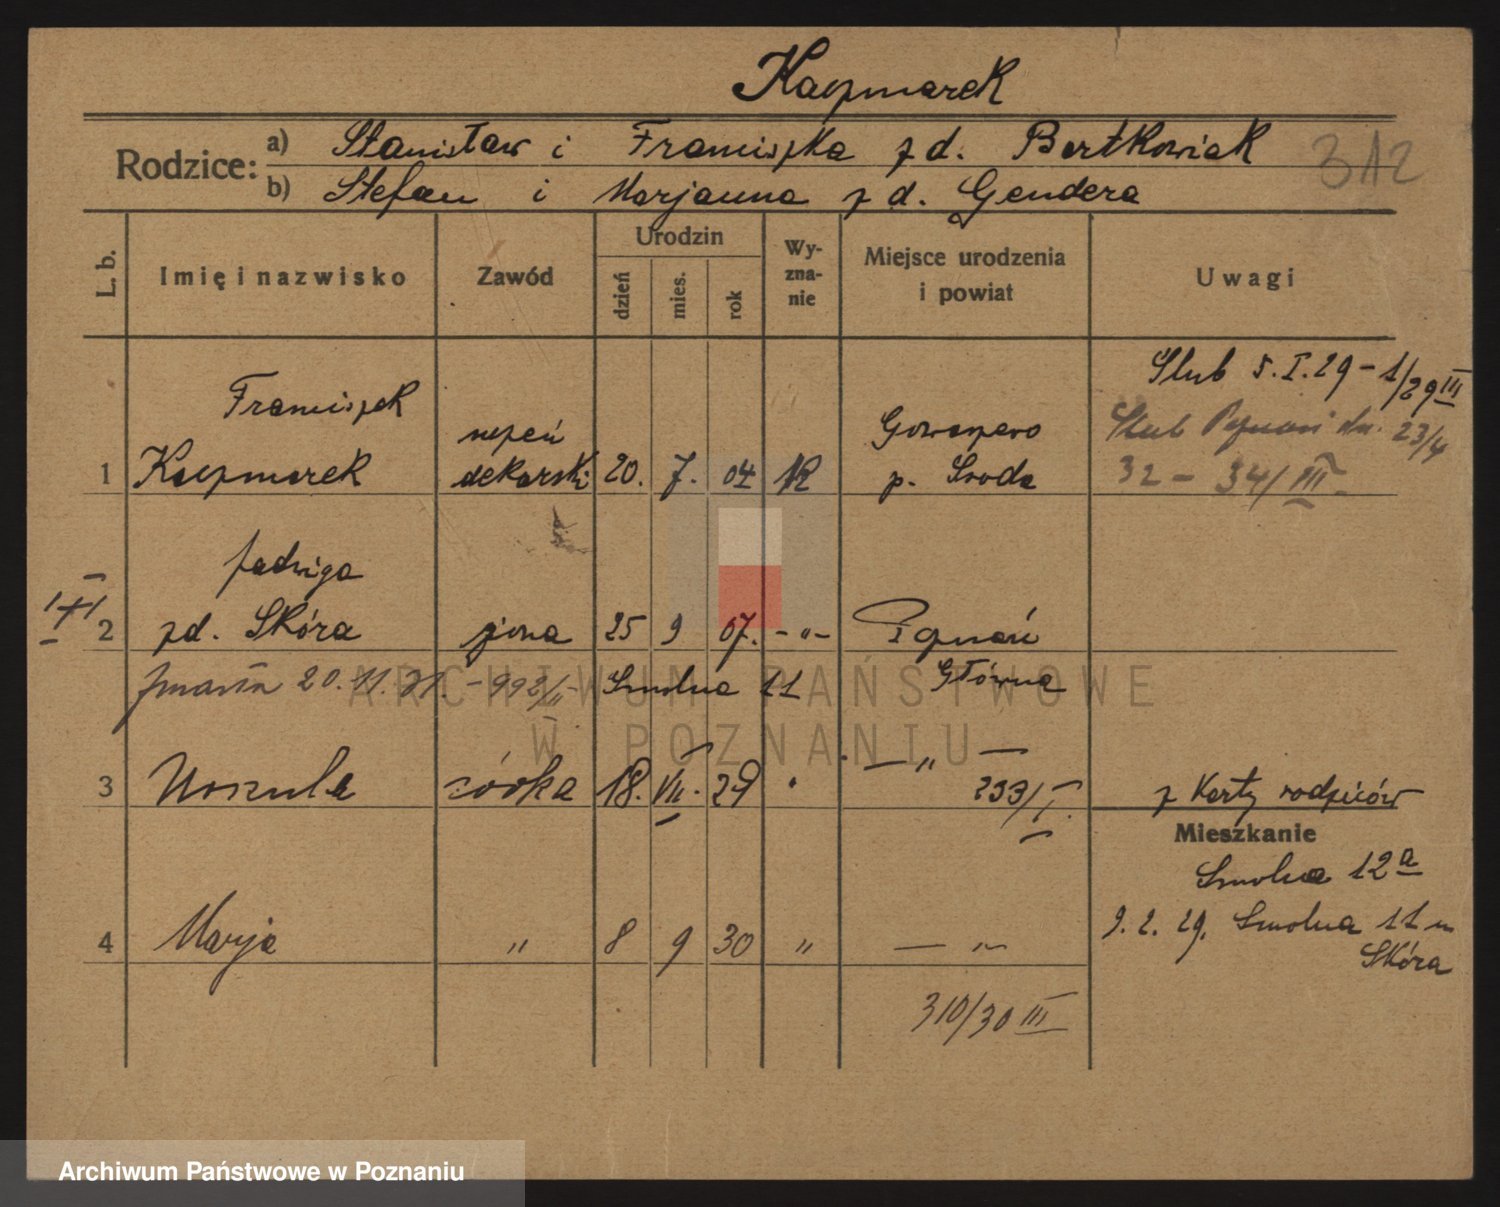 Kaczmarek
Rodzice: a) Stanisław i Franciszka z d. Bartkowiak 312
b) Stefan i Marjanna z d. Gendera
L. b. Imię i nazwisko Zawód Urodzin dzień mies. rok Wy-zna-nie Miejsce urodzenia i powiat Uwagi
Ślub 5.I.29 - 1/29 III
Franciszek
uczeń Gowarzewo Ślub Poznań dn. 23/4
1 Kaczmarek dekarski 20. 7. 04 p. Środa 32 - 34/III
Jadwiga
2 zd. Skóra żona 25 9 07. - „ - Poznań
zmarła 20.11.31. - 992/II - Smolna 11 Główna
3 Urszula córka 18. VII. 29 — „ —
233/I. z Karty rodziców
Mieszkanie
Smolna 12a
9. 2. 29. Smolna 11 u
4 Marja „ 8 9 30 „ — „ — Skóra
310/30 III
ARCHIWUM PAŃSTWOWE
W POZNANIU
Archiwum Państwowe w Poznaniu